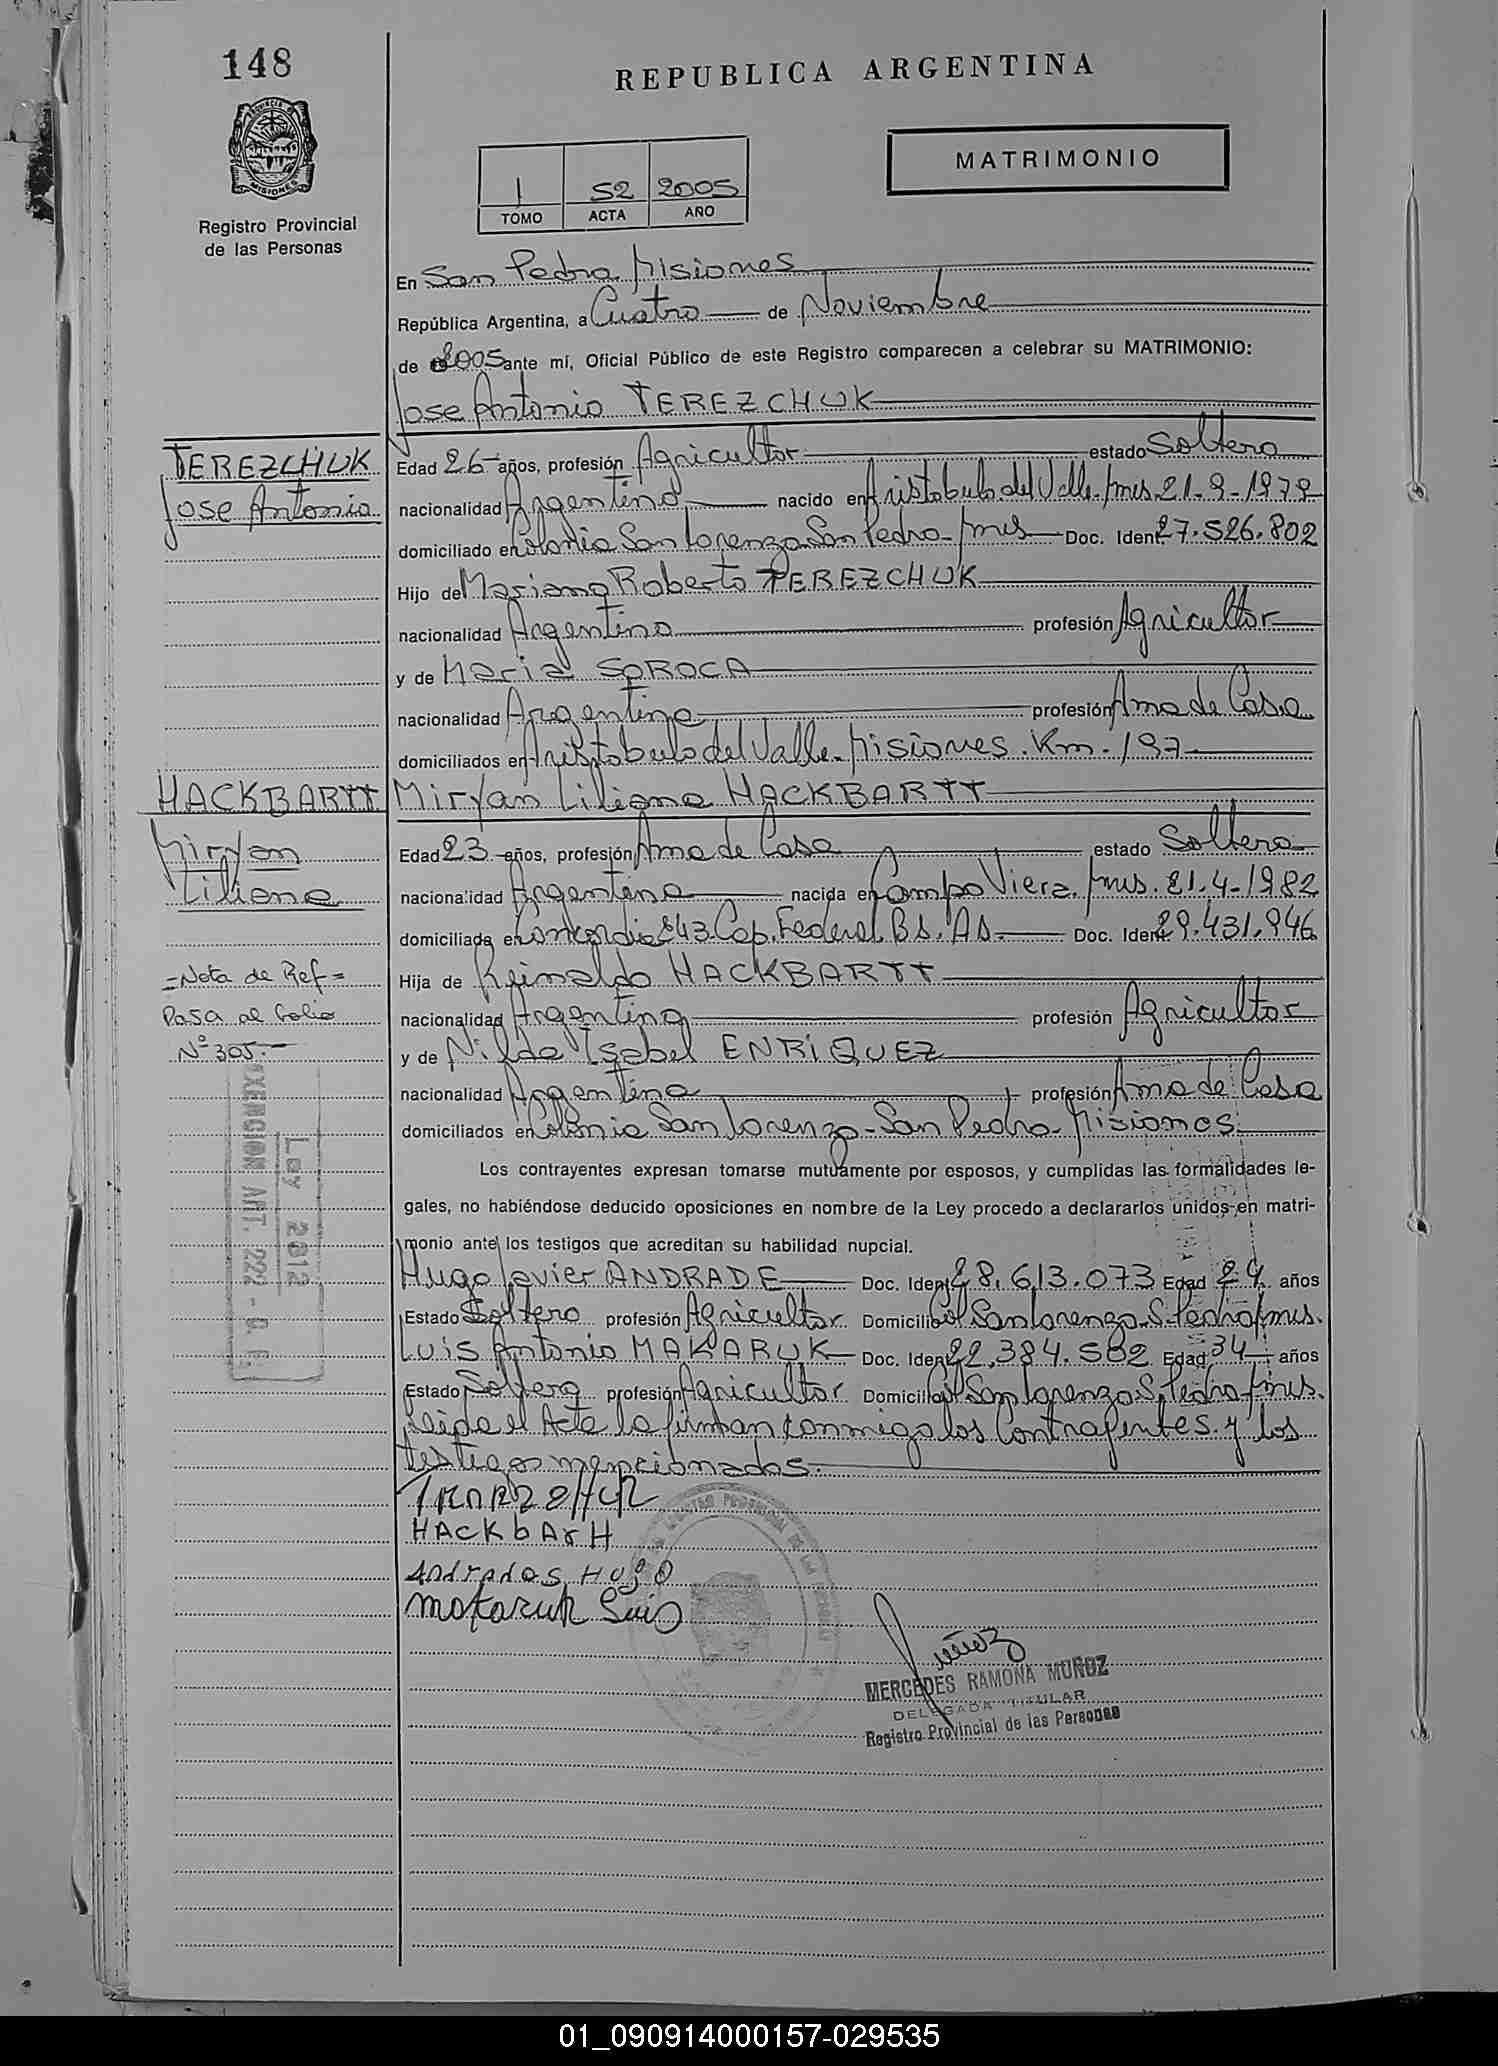 148
REPUBLICA ARGENTINA
PROVINCIA DE
MISIONES
Registro Provincial
de las Personas
MATRIMONIO
1 52 2005
TOMO ACTA AÑO
En San Pedro Misiones
República Argentina, a Cuatro de Noviembre
de 2005 ante mí, Oficial Público de este Registro comparecen a celebrar su MATRIMONIO:
Jose Antonio TEREZCHUK
TEREZCHUK
Jose Antonio
Edad 26 años, profesión Agricultor estado Soltero
nacionalidad Argentino nacido en Aristobulo del Valle Mnes 21-9-1979
domiciliado en Colonia San Lorenzo San Pedro Mnes Doc. Ident 27.526.802
Hijo de Mariano Roberto TEREZCHUK
nacionalidad Argentino profesión Agricultor
y de Maria SOROCA
nacionalidad Argentina profesión Ama de Casa
domiciliados en Aristobulo del Valle Misiones. Km. 197
HACKBARTT
Miryan
Liliana
Miryan Liliana HACKBARTT
Edad 23 años, profesión Ama de Casa estado Soltera
nacionalidad Argentina nacida en Campo Viera. Mnes. 21-4-1982
domiciliada en Concordia 843 Cap. Federal Bs. As. Doc. Ident 29.431.946
Hija de Reinaldo HACKBARTT
nacionalidad Argentino profesión Agricultor
y de Nilda Isabel ENRIQUEZ
nacionalidad Argentina profesión Ama de Casa
domiciliados en Colonia San Lorenzo - San Pedro - Misiones.
=Nota de Ref=
Pasa al folio
Nº 305.-
Ley 2812
EXENCION ART. 222
Los contrayentes expresan tomarse mutuamente por esposos, y cumplidas las formalidades le-
gales, no habiéndose deducido oposiciones en nombre de la Ley procedo a declararlos unidos en matri-
monio ante los testigos que acreditan su habilidad nupcial.
Hugo Javier ANDRADE Doc. Ident 28.613.073 Edad 24 años
Estado Soltero profesión Agricultor Domicilio Col San Lorenzo S. Pedro Mnes.
Luis Antonio MAKARUK Doc. Ident 22.384.582 Edad 34 años
Estado Soltero profesión Agricultor Domicilio Col San Lorenzo S. Pedro Mnes.
Leida el Acta la firman conmigo los Contrayentes y los
testigos mencionados.
HACKbArH
Andrades Hugo
makaruk Luis
Muñoz
MERCEDES RAMONA MUÑOZ
DELEGADA TITULAR
Registro Provincial de las Personas
01_090914000157-029535